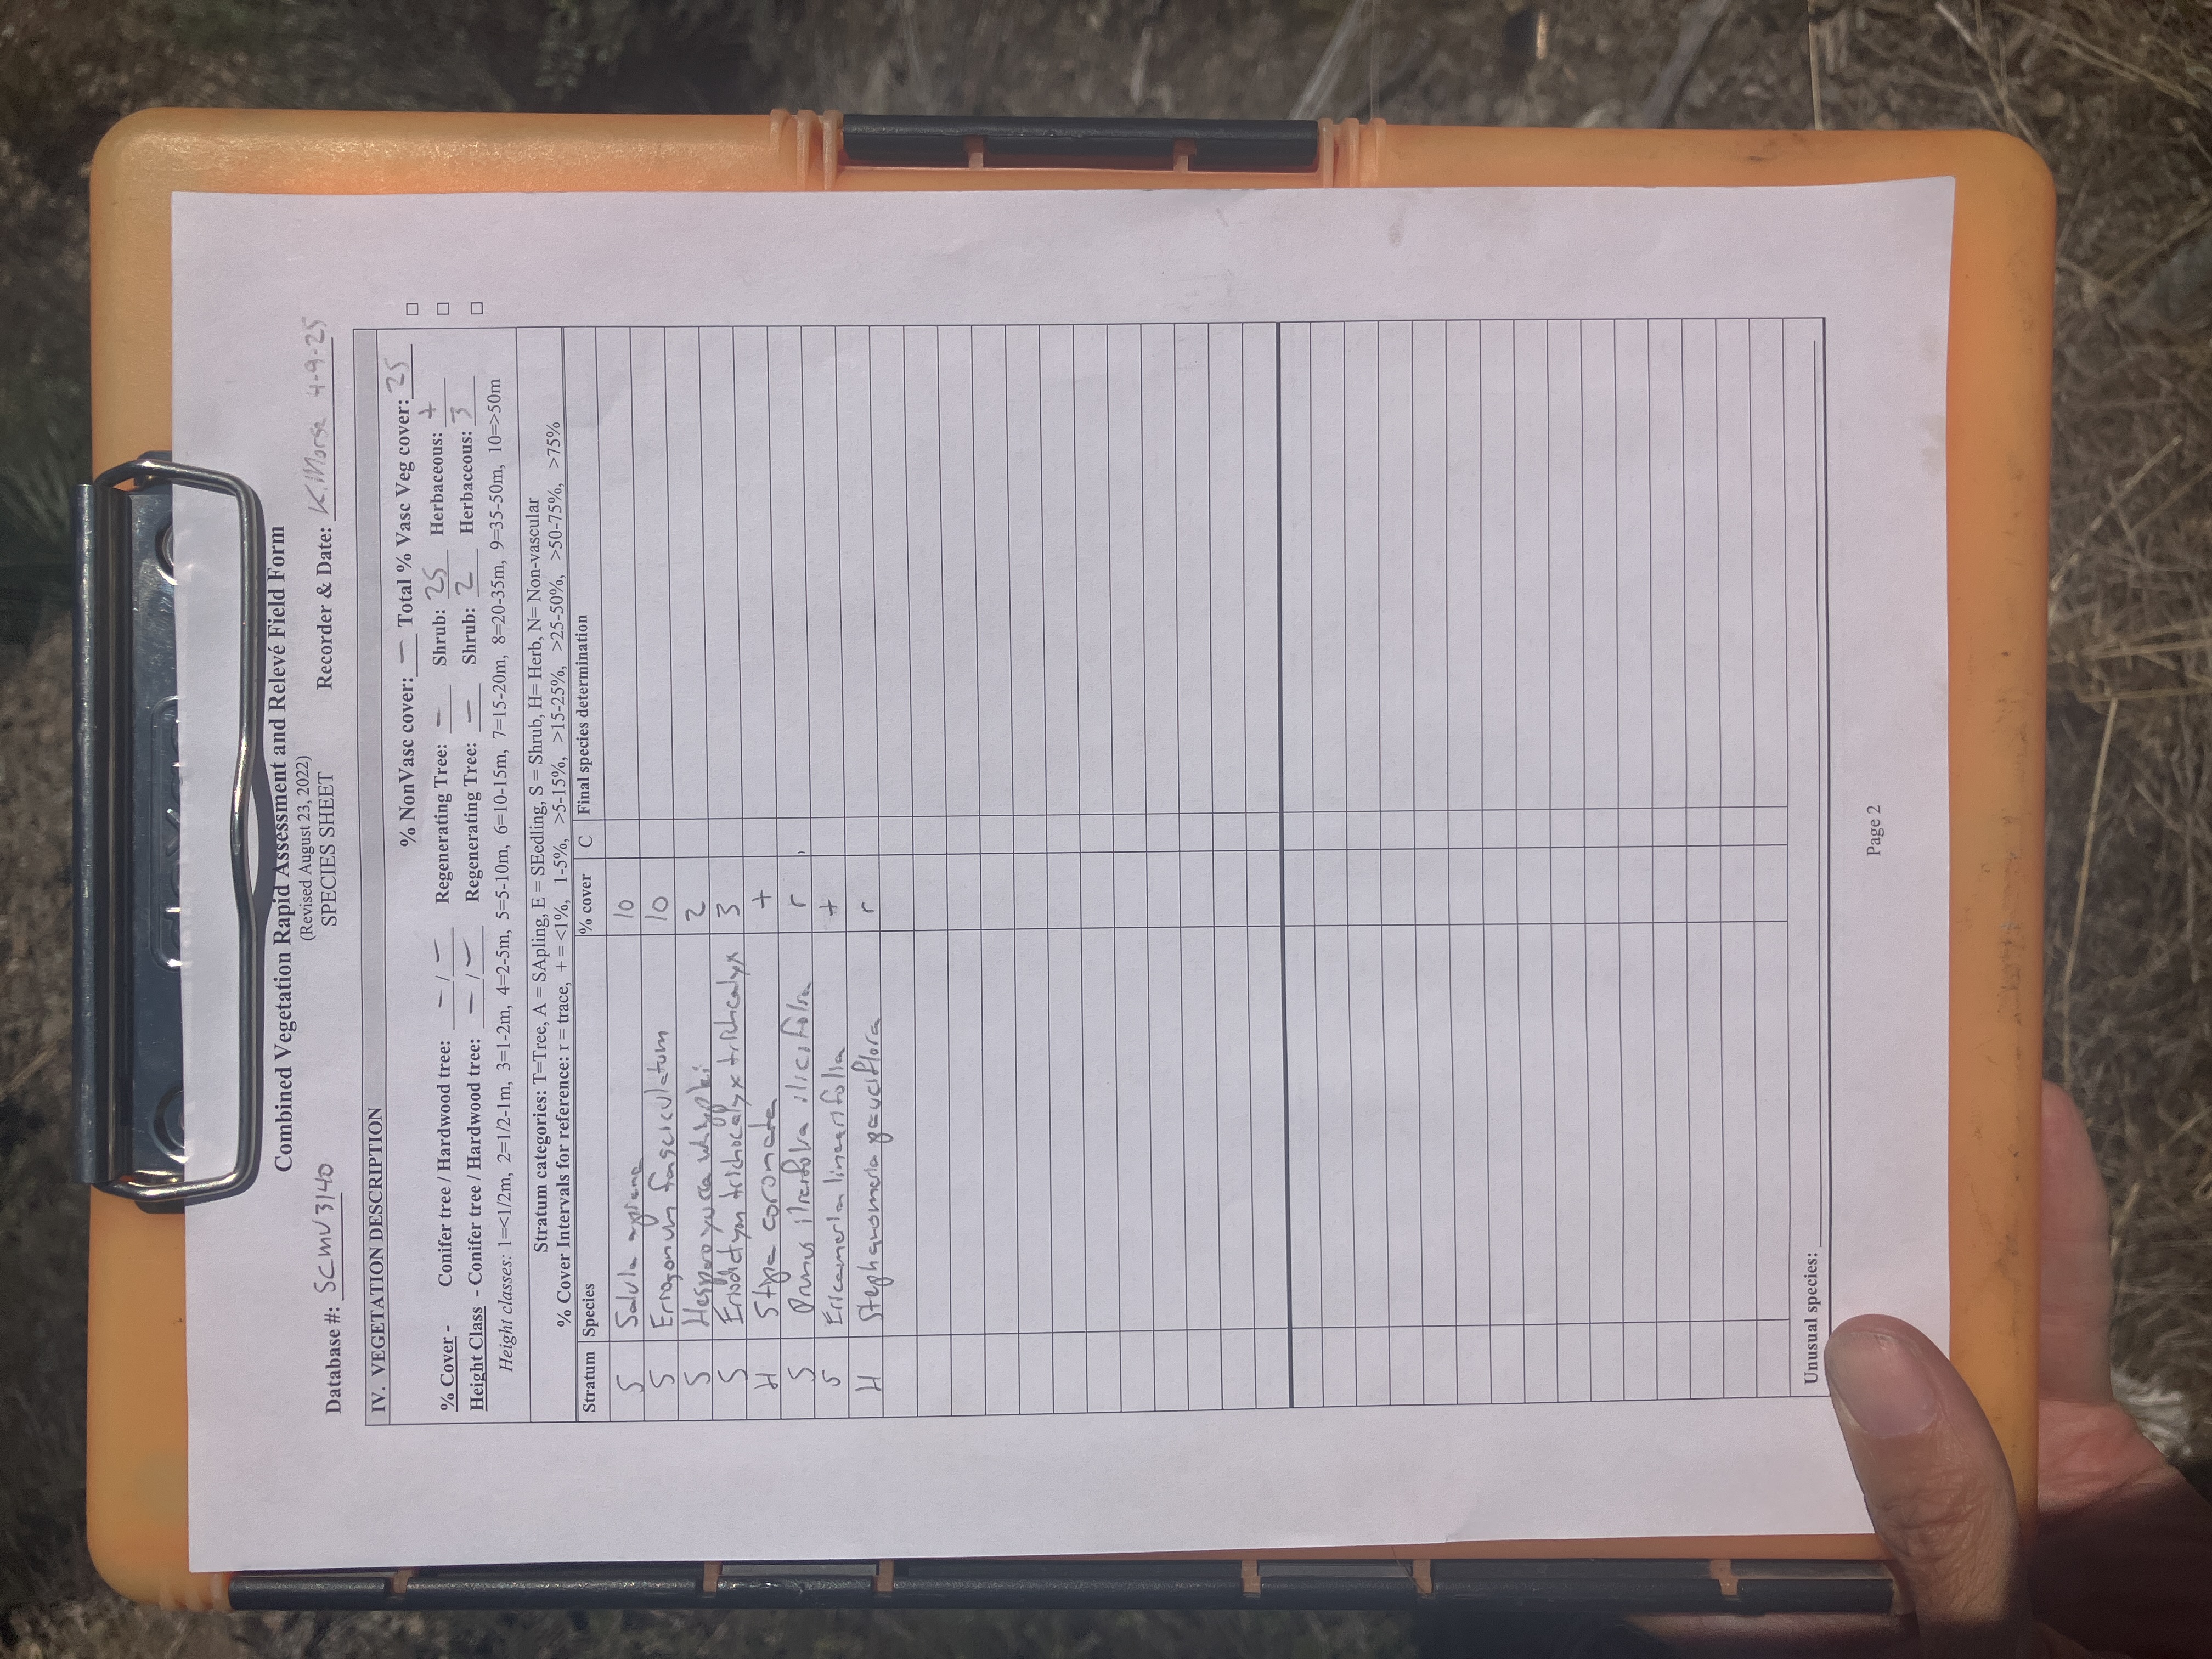 Combined Vegetation Rapid Assessment and Relevé Field Form
(Revised August 23, 2022)
SPECIES SHEET
Database #: SCMV3140 Recorder & Date: K.Morse 4-9-25
IV. VEGETATION DESCRIPTION
% NonVasc cover: — Total % Vasc Veg cover: 25 □
% Cover - Conifer tree / Hardwood tree: — / — Regenerating Tree: — Shrub: 25 Herbaceous: + □
Height Class - Conifer tree / Hardwood tree: — / — Regenerating Tree: — Shrub: 2 Herbaceous: 3 □
Height classes: 1=<1/2m, 2=1/2-1m, 3=1-2m, 4=2-5m, 5=5-10m, 6=10-15m, 7=15-20m, 8=20-35m, 9=35-50m, 10=>50m
Stratum categories: T=Tree, A = SApling, E = SEedling, S = Shrub, H= Herb, N= Non-vascular
% Cover Intervals for reference: r = trace, + = <1%, 1-5%, >5-15%, >15-25%, >25-50%, >50-75%, >75%
Stratum Species % cover C Final species determination
S Salvia apiana 10
S Eriogonum fasciculatum 10
S Hesperoyucca whipplei 2
S Eriodictyon trichocalyx trichcalyx 3
H Stipa coronata +
S Prunus ilicifolia ilicifolia r
S Ericameria linearifolia +
H Stephanomeria pauciflora r
Unusual species:
Page 2